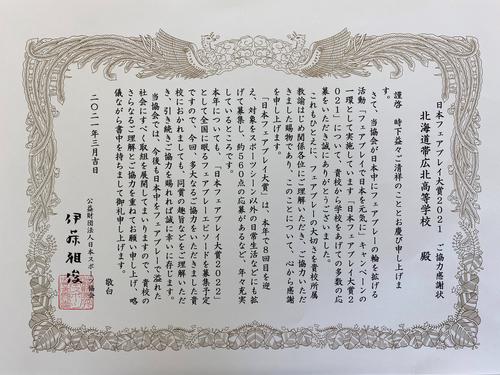 日本フェアプレイ大賞2021 ご協力感謝状
北海道帯広北高等学校 殿
謹啓 時下益々ご清祥のこととお慶び申し上げま
す。
さて、当協会が日本中にフェアプレーの輪を拡げる
活動「フェアプレイで日本を元気に」キャンペーンの
一環として実施しています「日本フェアプレイ大賞2
021」について、貴校から学校をあげての多数の応
募をいただき誠にありがとうございました。
これもひとえに、フェアプレーの大切さを貴校所属
教諭はじめ関係各位にご理解いただき、ご協力いただ
きました賜物であり、このことについて、心から感謝
を申し上げます。
「日本フェアプレイ大賞」は、本年で8回目を迎
え、対象をスポーツシーン以外の日常生活などにも拡
げて募集し、約560点の応募があるなど、年々充実
しているところです。
本年についても、「日本フェアプレイ大賞2022」
として全国に眠るフェアプレーエピソードを募集予定
ですので、今回、多大なるご協力をいただきました貴
校におかれましても、同賞の趣旨などをご理解いただ
き、引き続きご協力を賜れれば誠に幸いに存じます。
当協会では、今後も日本中をフェアプレーで溢れた
社会にすべく取組を展開してまいりますので、貴校の
さらなるご理解とご協力を重ねてお願い申し上げ、略
儀ながら書中を持ちまして御礼申し上げます。
敬白
二〇二一年三月吉日
公益財団法人日本スポーツ協会
伊藤雅俊